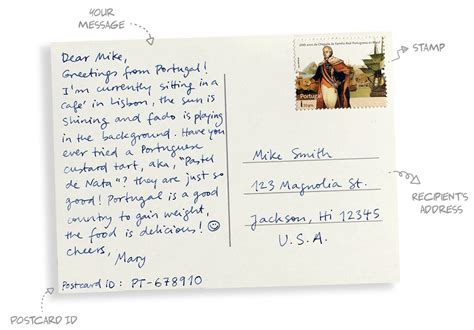 YOUR
MESSAGE
Dear Mike,
Greetings from Portugal!
I'm currently sitting in a
café in Lisbon, the sun is
shining and fado is playing
in the background. Have you
ever tried a Portuguese
custard tart, aka, "Pastel
de Nata"? they are just so
good! Portugal is a good
country to gain weight,
the food is delicious! ☺
cheers,
Mary
Postcard ID: PT-678910
POSTCARD ID
STAMP
Portugal
Mike Smith
123 Magnolia St.
Jackson, Hi 12345
U.S.A.
RECIPIENTS
ADDRESS